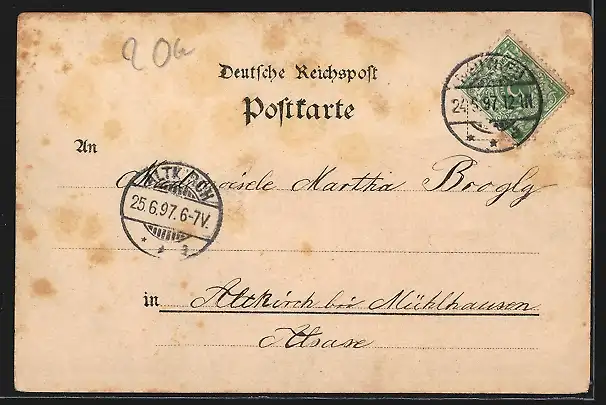 20a
Deutsche Reichspost
Postkarte
24.6.97.12-1N
An
Martha Brogly
ALTKIRCH
25.6.97.6-7V.
in Altkirch bei Mühlhausen
Alsace